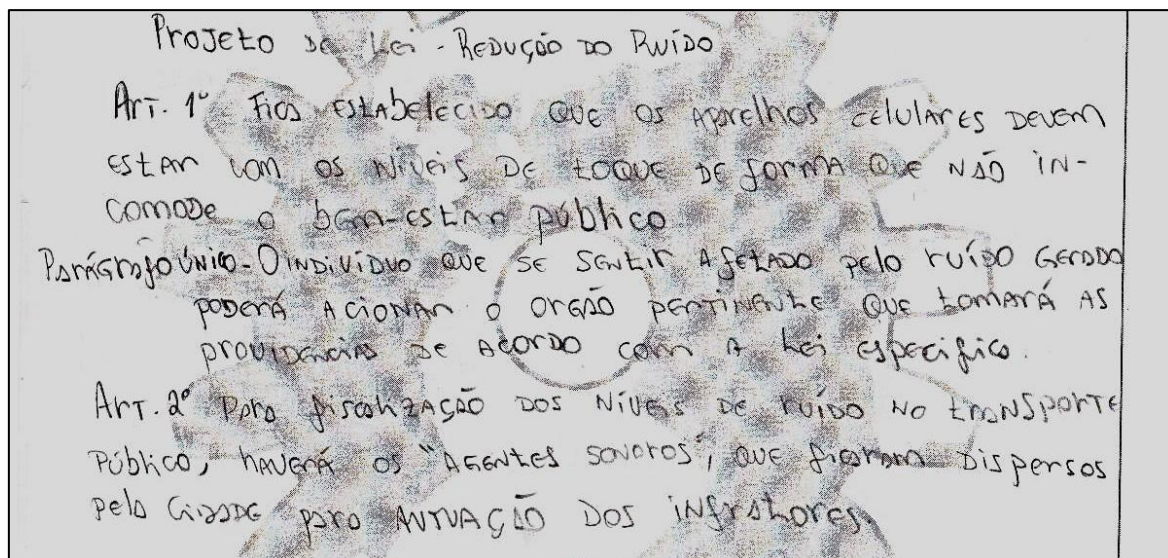 Projeto de Lei - Redução do Ruído
Art. 1º Fica estabelecido que os aparelhos celulares devem
estar com os níveis de toque de forma que não in-
comode o bem-estar público
Parágrafo único - O indivíduo que se sentir afetado pelo ruído gerado
poderá acionar o orgão pertinente que tomará as
providencias de acordo com a Lei especifica.
Art. 2º Para fiscalização dos níveis de ruído no transporte
público, haverá os "Agentes sonoros", que ficaram dispersos
pela cidade para autuação dos infratores.